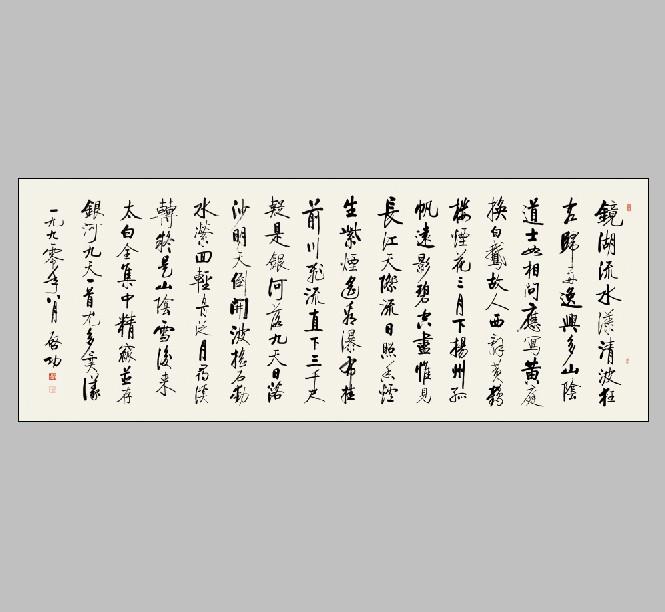 鏡湖流水漾清波狂
客歸舟逸興多山陰
道士如相問應寫黃庭
換白鵞故人西辭黃鶴
樓煙花三月下揚州孤
帆遠影碧空盡惟見
長江天際流日照香爐
生紫煙遙看瀑布挂
前川飛流直下三千尺
疑是銀河落九天日落
沙明天倒開波搖石動
水縈回輕舟泛月尋溪
轉疑是山陰雪後來
太白全集中精並存
銀河九天一首尤多
一九九零年八月 啓功